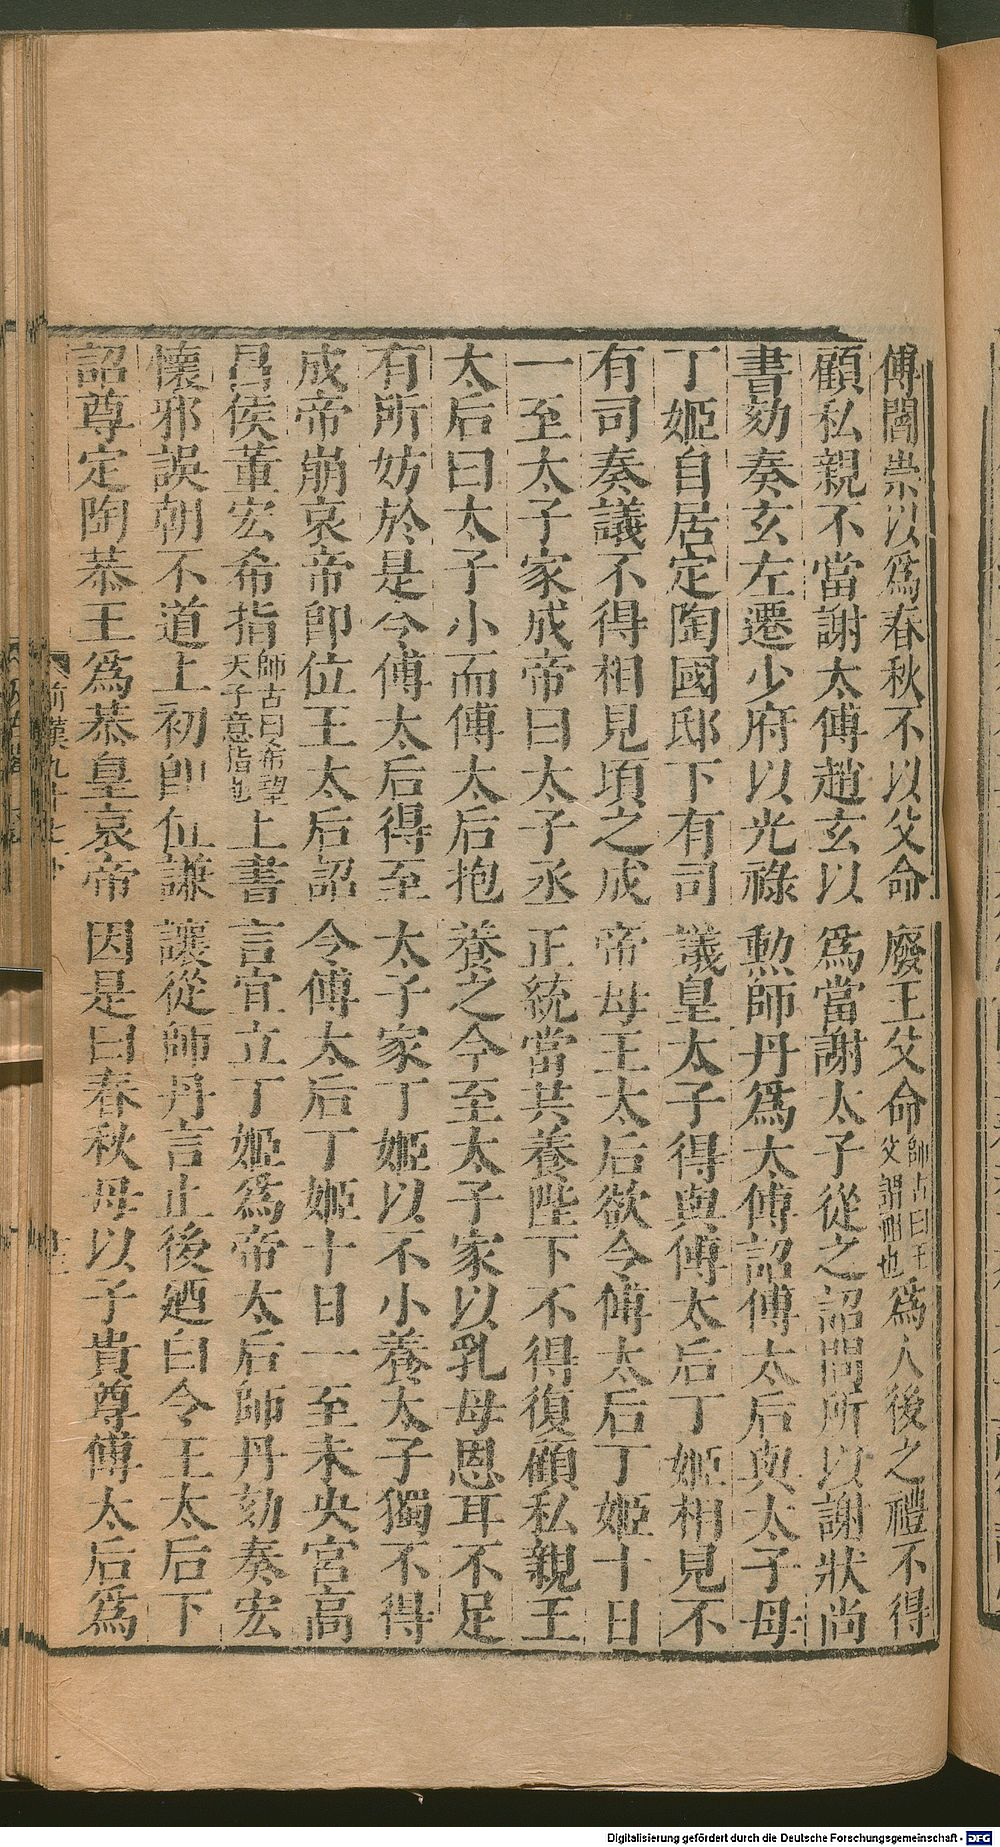 傅閻崇以爲春秋不以父命廢王父命師古曰王父謂祖也爲人後之禮不得
顧私親不當謝太傅趙玄以爲當謝太子從之詔問所以謝狀尚
書劾奏玄左遷少府以光祿勲師丹爲太傅詔傅太后與太子母
丁姬自居定陶國邸下有司議皇太子得與傅太后丁姬相見不
有司奏議不得相見頃之成帝母王太后欲令傅太后丁姬十日
一至太子家成帝曰太子丞正統當共養陛下不得復顧私親王
太后曰太子小而傅太后抱養之今至太子家以乳母恩耳不足
有所妨於是令傅太后得至太子家丁姬以不小養太子獨不得
成帝崩哀帝卽位王太后詔令傅太后丁姬十日一至未央宮高
昌侯董宏希指師古曰希望天子意指也上書言宜立丁姬爲帝太后師丹劾奏宏
懷邪誤朝不道上初卽位謙讓從師丹言止後廼白令王太后下
詔尊定陶恭王爲恭皇哀帝因是曰春秋母以子貴尊傅太后爲
前漢九十七下
Digitalisierung gefördert durch die Deutsche Forschungsgemeinschaft - DFG